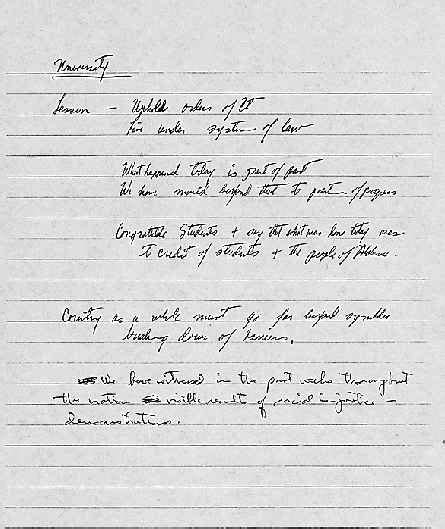 University
Lesson - Uphold orders of
Live under system of law
What happened today is part of past
We have moved beyond that to point of progress
Congratulate Students + say that what was done today was
to credit of students + the people of Alabama.
Country as a whole must go far beyond symbolic
breaking down of barriers.
We have witnessed in the past weeks throughout
the nation result of racial injustice -
demonstrations.